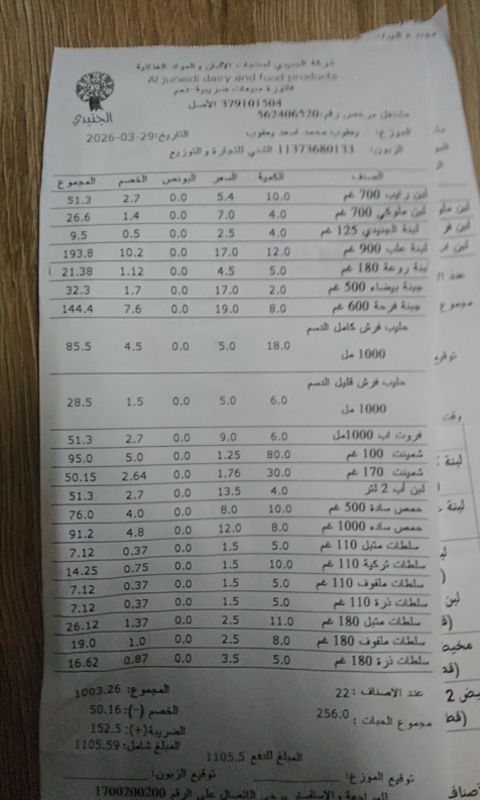 شركة الجنيدي لمنتجات الألبان والمواد الغذائية
Al juneidi dairy and food products
فاتورة مبيعات ضريبية-نعم
379101504 الأصل
مشتغل مرخص رقم:562406520
الجنيدي
الموزع: يعقوب محمد اسعد يعقوب
التاريخ:29-03-2026
الزبون: 11373680133 الشني للتجارة و التوزيع
الصنف الكمية السعر البونص الخصم المجموع
لبن رايب 700 غم 10.0 5.4 0.0 2.7 51.3
لبن ملوكي 700 غم 4.0 7.0 0.0 1.4 26.6
لبنة الجنيدي 125 غم 4.0 2.5 0.0 0.5 9.5
لبنة علب 900 غم 12.0 17.0 0.0 10.2 193.8
لبنة روعة 180 غم 5.0 4.5 0.0 1.12 21.38
جبنة بيضاء 500 غم 2.0 17.0 0.0 1.7 32.3
جبنة فرحة 600 غم 8.0 19.0 0.0 7.6 144.4
حليب فرش كامل الدسم
1000 مل 18.0 5.0 0.0 4.5 85.5
حليب فرش قليل الدسم
1000 مل 6.0 5.0 0.0 1.5 28.5
فروت اب 1000مل 6.0 9.0 0.0 2.7 51.3
شمينت 100 غم 80.0 1.25 0.0 5.0 95.0
شمينت 170 غم 30.0 1.76 0.0 2.64 50.15
لبن أب 2 لتر 4.0 13.5 0.0 2.7 51.3
حمص سادة 500 غم 10.0 8.0 0.0 4.0 76.0
حمص ساده 1000 غم 8.0 12.0 0.0 4.8 91.2
سلطات متبل 110 غم 5.0 1.5 0.0 0.37 7.12
سلطات تركية 110 غم 10.0 1.5 0.0 0.75 14.25
سلطات ملفوف 110 غم 5.0 1.5 0.0 0.37 7.12
سلطات ذرة 110 غم 5.0 1.5 0.0 0.37 7.12
سلطات متبل 180 غم 11.0 2.5 0.0 1.37 26.12
سلطات ملفوف 180 غم 8.0 2.5 0.0 1.0 19.0
سلطات ذرة 180 غم 5.0 3.5 0.0 0.87 16.62
عدد الاصناف : 22
المجموع: 1003.26
مجموع الحبات : 256.0
الخصم (-): 50.16
الضريبة(+): 152.5
المبلغ شامل: 1105.59
المبلغ للدفع 1105.5
توقيع الموزع:
توقيع الزبون:
للمراجعة والاستفسار يرجى الاتصال على الرقم 1700200200